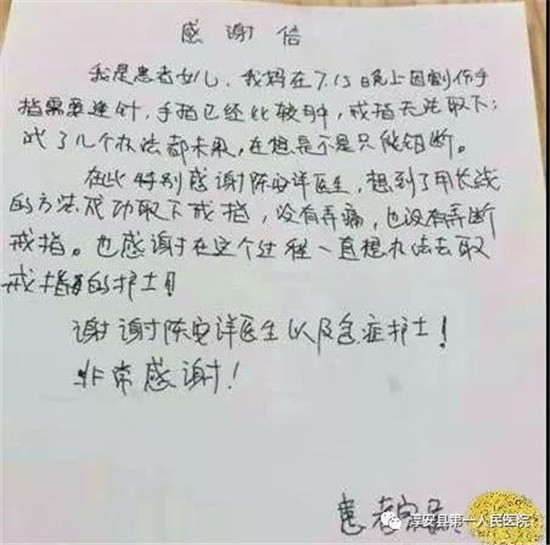 感谢信
我是患者女儿，我妈在7.13晚上因割伤手
指需要逢针，手指已经比较肿，戒指无法取下；
试了几个办法都未果，在想是不是只能钳断。
在此特别感谢陈安详医生，想到了用长线
的方法成功取下戒指，没有弄痛，也没有弄断
戒指。也感谢在这个过程一直想办法去取
戒指的护士！
谢谢陈安详医生以及急症护士！
非常感谢！
患者家属
淳安县第一人民医院